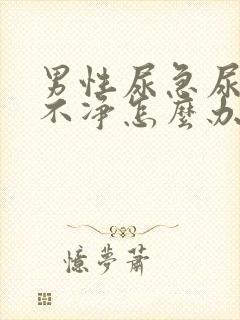 男性尿急尿
不净怎麼办
憶夢蕭